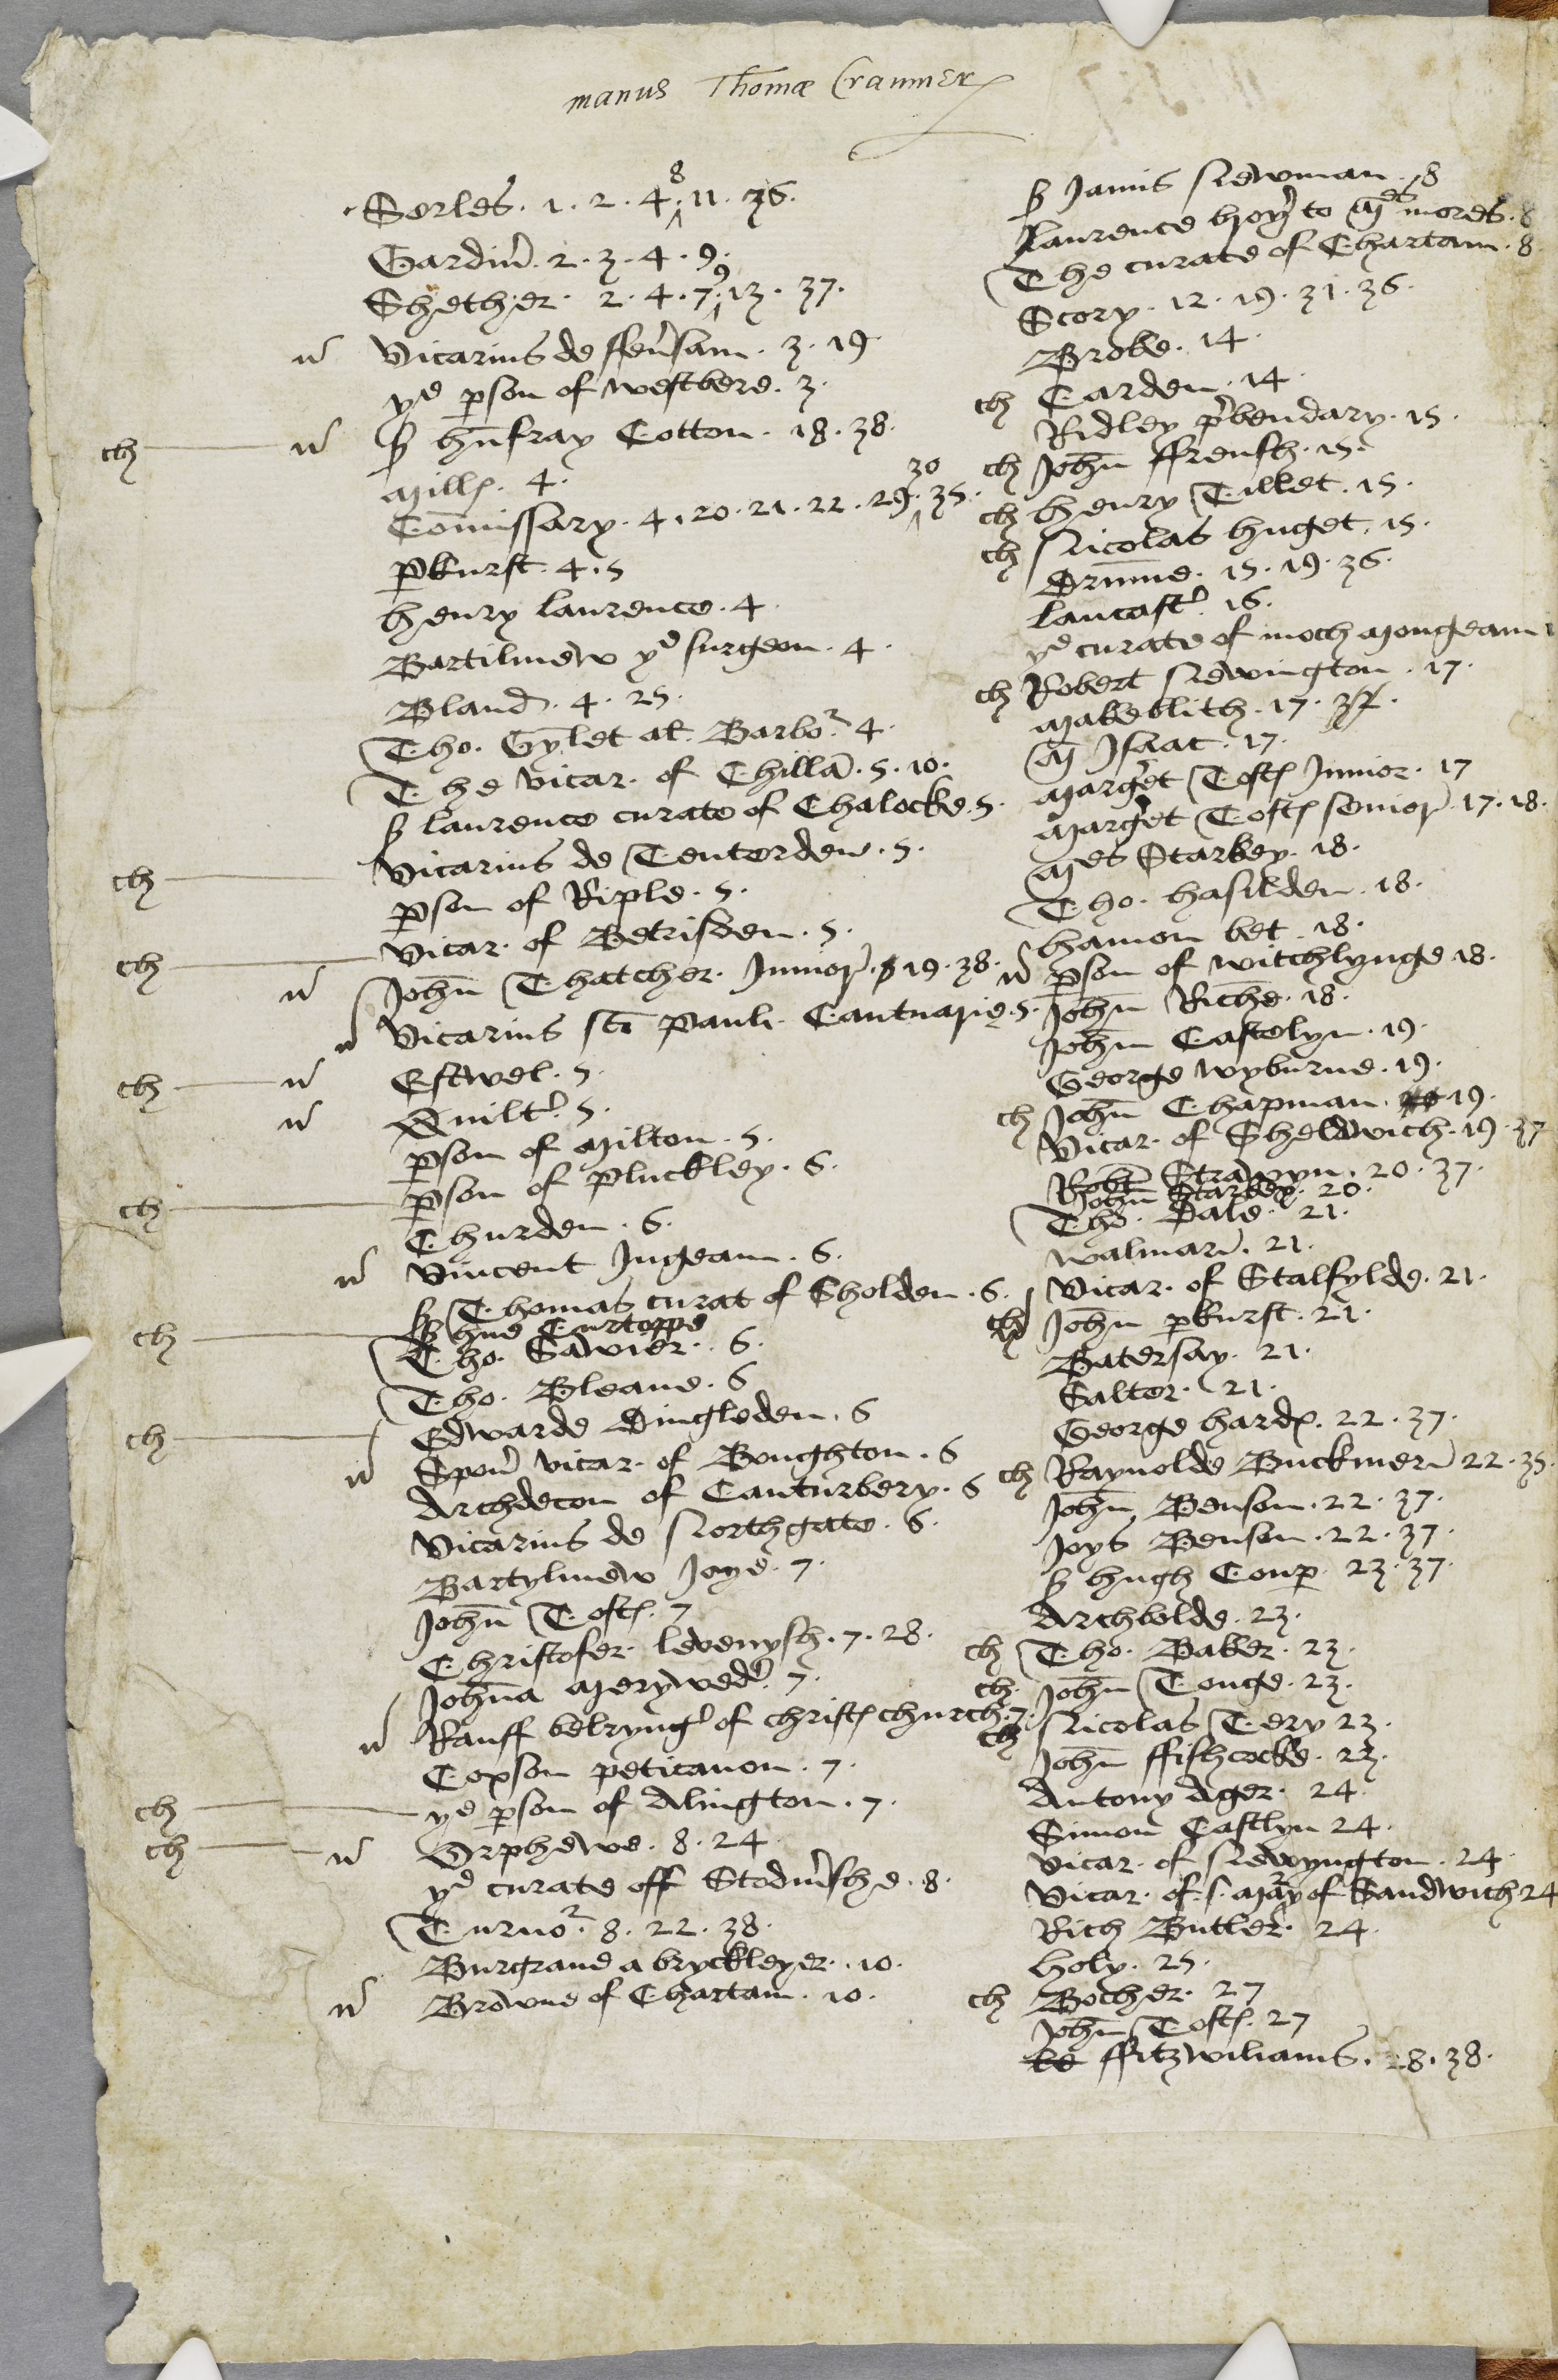 manus Thomæ Cranmer
Serles. 1. 2. 4. 8 11. 36.
Gardiner. 2. 3. 4. 9.
Shether. 2. 4. 7. 9 13. 37.
Vicarius de ffeversam. 3. 19.
ye pson of westbere. 3.
ch S humfray Cotton. 18. 38.
Mills. 4.
Comissary. 4. 20. 21. 22. 29. 30 35.
pkurst. 4. 5
henry laurence. 4.
Bartilmew ye surgeon. 4.
Bland. 4. 25.
Tho. Gylet al. Barbor 4.
The vicar of Chillam. 5. 10.
S laurence curate of Chalocke. 5.
ch Vicarius de Tenterden. 5.
pson of Riple. 5.
ch Vicar of Betrisden. 5.
John Thatcher Junior. 19. 38.
Vicarius sti Pauli Cantuarie. 5.
ch Estwel. 5.
Quilter. 5.
pson of Milton. 5.
ch pson of pluckley. 6.
Thurden. 6.
Vincent Ingeam. 6.
S Thomas curat of Sholden. 6.
ch hue Curtoppe
Tho. Sawier. 6.
Tho. Bleane. 6
ch Edwarde Dingleden. 6
Spon vicar of Boughton. 6
Archdecon of Canturbery. 6
Vicarius de Northgate. 6.
Bartylmew Joye. 7.
John Tofts. 7
Christofer levenysh. 7. 28.
Johna Meryweder. 7.
Rauff belrynger of christs church. 7.
Coxson peticanon. 7.
ch ye pson of Alington. 7.
ch Orphewe. 8. 24
ye curate off Stodmershe. 8.
Turnor. 8. 22. 38.
Burgrane a bryckleyer. 10.
Browne of Chartam. 10.
S Jamis Newman. 8
laurence boye to Mres mores. 8
The curate of Chartam. 8.
Scory. 12. 19. 31. 36.
Broke. 14.
ch Carden. 14.
Ridley pbendary. 15.
ch John ffrensh. 15.
ch henry Tillet. 15.
ch Nicolas huget. 15.
Drumme. 15. 19. 36.
lancaster. 16.
ye curate of moch Mongeam
ch Robert Newington. 17.
Makeblith. 17.
M Isaac. 17.
Marget Tofts Junior. 17
Marget Tofts senior. 17. 18.
Mes Starkey. 18.
Tho. hasilden. 18.
hamon bet. 18.
pson of witchlynge 18.
John Riche. 18.
John Castelyn. 19.
George wyburne. 19.
ch John Chapman. 19.
Vicar of Sheldwich. 19. 37
Robt Strawyn. 20. 37.
John Starkey. 20.
Tho. Dale. 21.
walmar. 21.
Vicar of Stalfylde. 21.
ch John pkurst. 21.
Batersay. 21.
Salter. 21.
George hards. 22. 37.
ch Raynolde Buckmer 22. 35.
John Benson. 22. 37.
Joys Benson. 22. 37.
S hugh Coup 23. 37.
Archbolde. 23.
ch Tho. Baker. 23.
ch John Tonge. 23.
ch Nicolas Tery 23.
John ffishcocke. 23.
Antony Ager. 24.
Simon Castlyn 24.
vicar of Newyngton. 24.
Vicar of s. Mary of Sandwich 24
Rich Butler. 24.
holy. 25.
ch Bocher. 27
John Tofts. 27
ffitzwiliams. 28. 38.